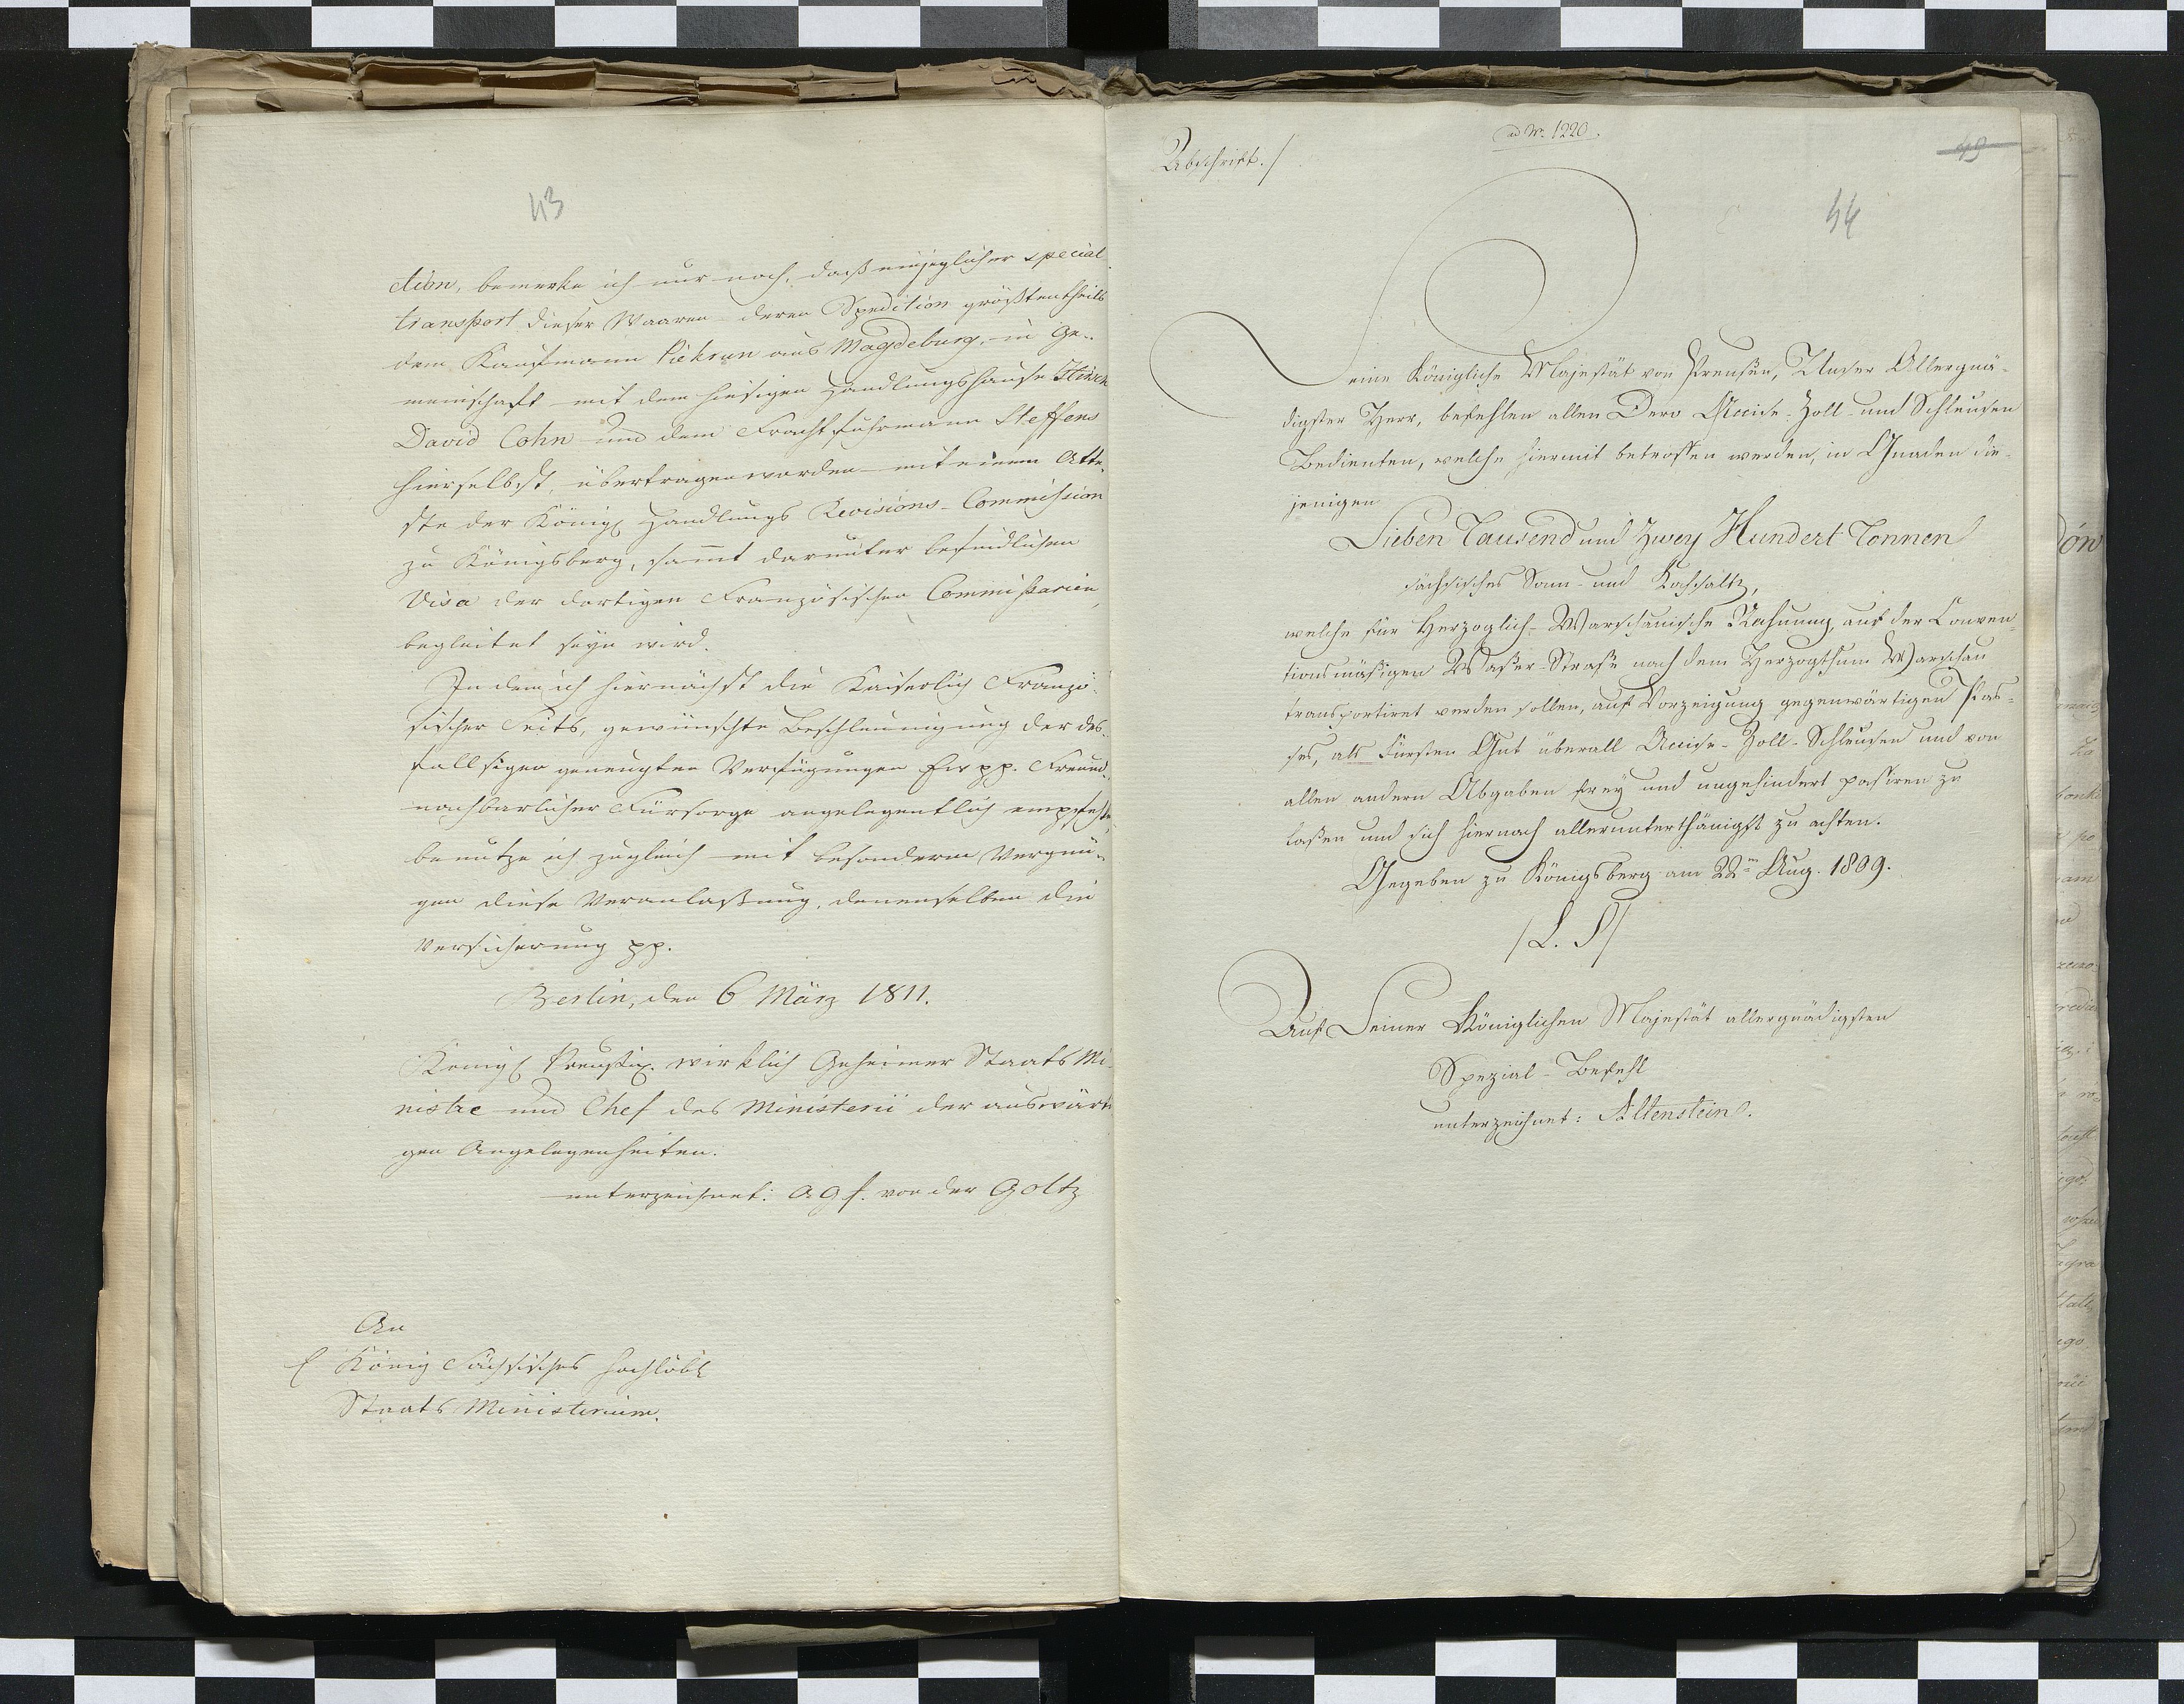 43
ction, bemerke ich nur noch, daß einjeglicher special
transport dieser Waaren deren Spedition größtentheils
dem Kaufmann Piekrun aus Magdeburg, in Ge-
meinschaft mit dem hiesigen Handlungshause Hirsch
David Cohn und dem Frachtfuhrmann Steffens
hierselbst, übertragen worden mit einem Atte-
ste der Königl Handlungs Revisions-Commission
zu Königsberg, samt darunter befindlichen
Visa der dortigen Französischen Commißarien,
begleitet seyn wird.
Indem ich hiernächst die Kaiserlich Franzö-
sischer Seits, gewünschte Beschleunigung der des-
fallsigen geneugten Verfügungen Ew pp. Freund-
nachbarlicher Fürsorge angelegentlich empfehle,
benutze ich zugleich mit besonderm Vergnü-
gen diese Veranlaßung, denenselben die
Versicherung pp.
Berlin, den 6 März 1811.
Königl Preußis. wirklich Geheimer Staats Mi-
nistre und Chef des Ministerii der auswärti
gen Angelegenheiten.
unterzeichnet: von der Goltz
An
König Sächsisches hochlöbl
Staats Ministerium.
Abschrift./
ad Nr. 1220.
49
44
Seine Königliche Majestät von Preußen, Unser Allergnä-
digster Herr, befehlen allen Dero Accise-Zoll- und Schleusen
Bedienten, welche hiermit betroffen werden, in Gnaden die-
jenigen
Sieben Tausend und Zwey Hundert Tonnen
sächsisches Sonn- und Kochsaltz,
welche für Herzoglich-Warschauische Rechnung auf der Conven-
tionsmäßigen Waßer-Straße nach dem Herzogthum Warschau
transportiret werden sollen, auf Vorzeigung gegenwärtigen Pas-
ses, als Fürsten Gut überall Accise-Zoll-Schleusen und von
allen andern Abgaben frey und ungehindert passiren zu
laßen und sich hiernach allerunterthänigst zu achten.
Gegeben zu Königsberg am 22ten Aug. 1809.
/L. S/
Auf Seiner Königlichen Majestät allergnädigsten
Spezial-Befehl
unterzeichnet: Altenstein.